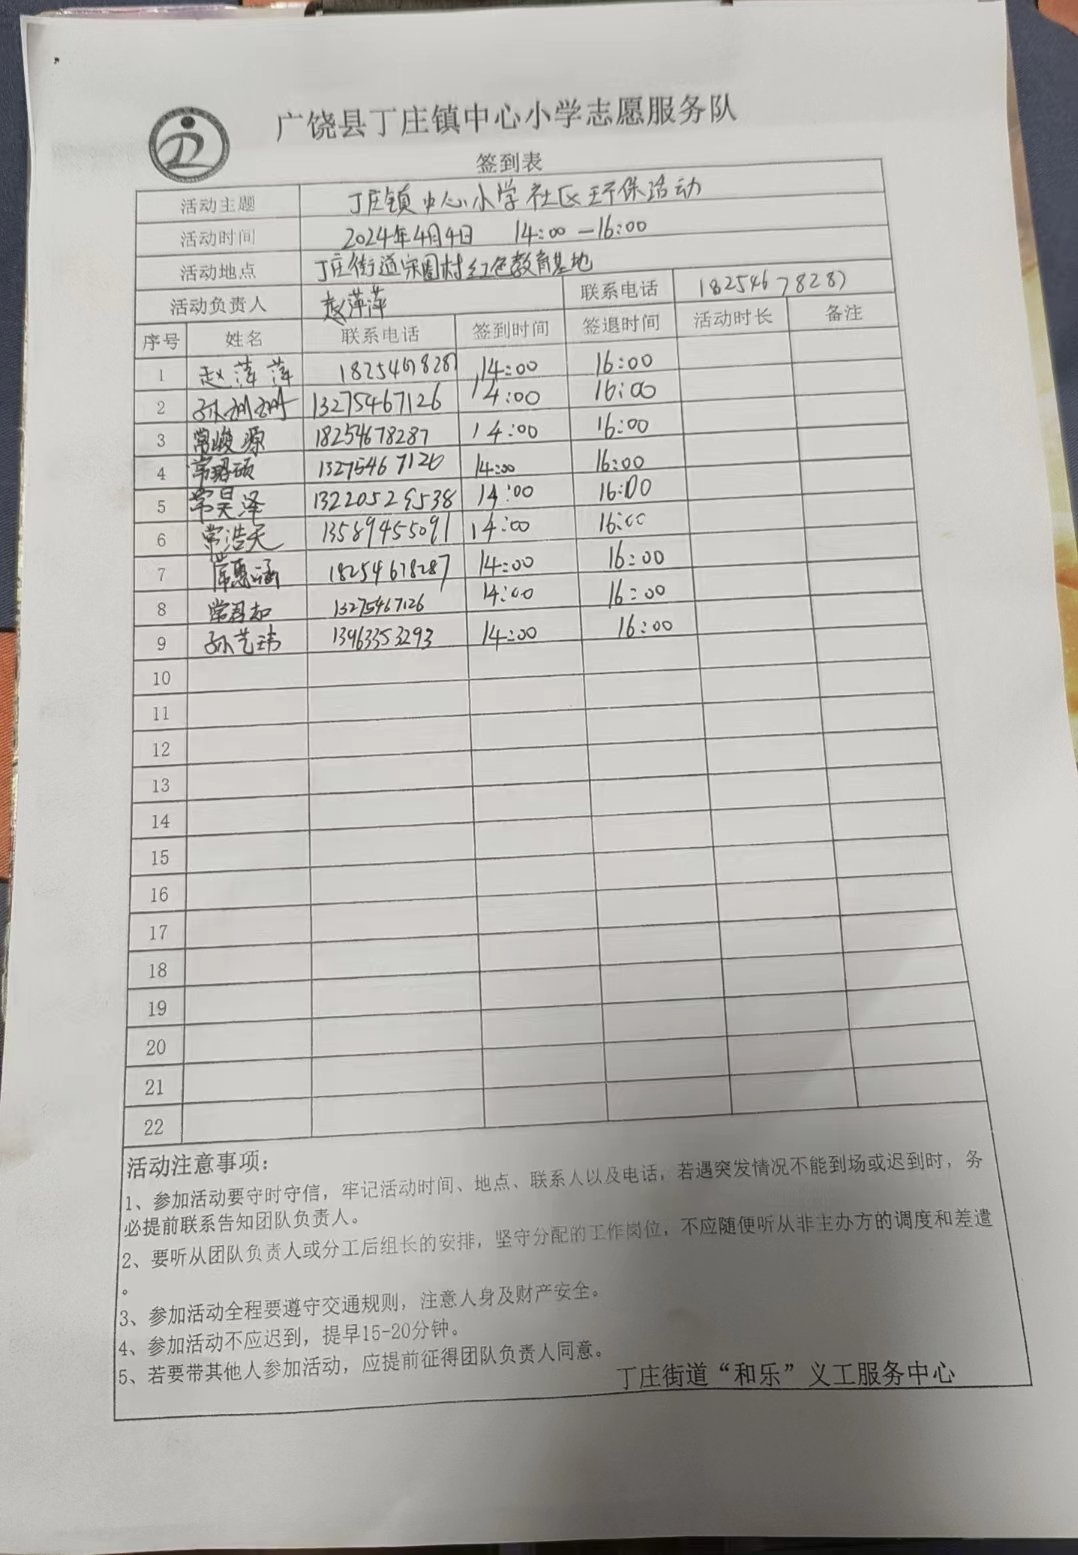 广饶县丁庄镇中心小学志愿服务队
签到表
活动主题 丁庄镇中心小学社区环保活动
活动时间 2024年4月4日 14:00-16:00
活动地点 丁庄街道宋圈村红色教育基地
活动负责人 赵萍萍 联系电话 18254678287
序号 姓名 联系电话 签到时间 签退时间 活动时长 备注
1 赵萍萍 18254678287 14:00 16:00
2 孙 13275467126 14:00 16:00
3 常峻源 18254678287 14:00 16:00
4 常硕 13275467126 14:00 16:00
5 常昊泽 13220529538 14:00 16:00
6 常浩天 13589455091 14:00 16:00
7 惠涵 18254678287 14:00 16:00
8 常 13275467126 14:00 16:00
9 孙艺玮 13963353293 14:00 16:00
10
11
12
13
14
15
16
17
18
19
20
21
22
活动注意事项：
1、参加活动要守时守信，牢记活动时间、地点、联系人以及电话，若遇突发情况不能到场或迟到时，务
必提前联系告知团队负责人。
2、要听从团队负责人或分工后组长的安排，坚守分配的工作岗位，不应随便听从非主办方的调度和差遣
。
3、参加活动全程要遵守交通规则，注意人身及财产安全。
4、参加活动不应迟到，提早15-20分钟。
5、若要带其他人参加活动，应提前征得团队负责人同意。
丁庄街道“和乐”义工服务中心